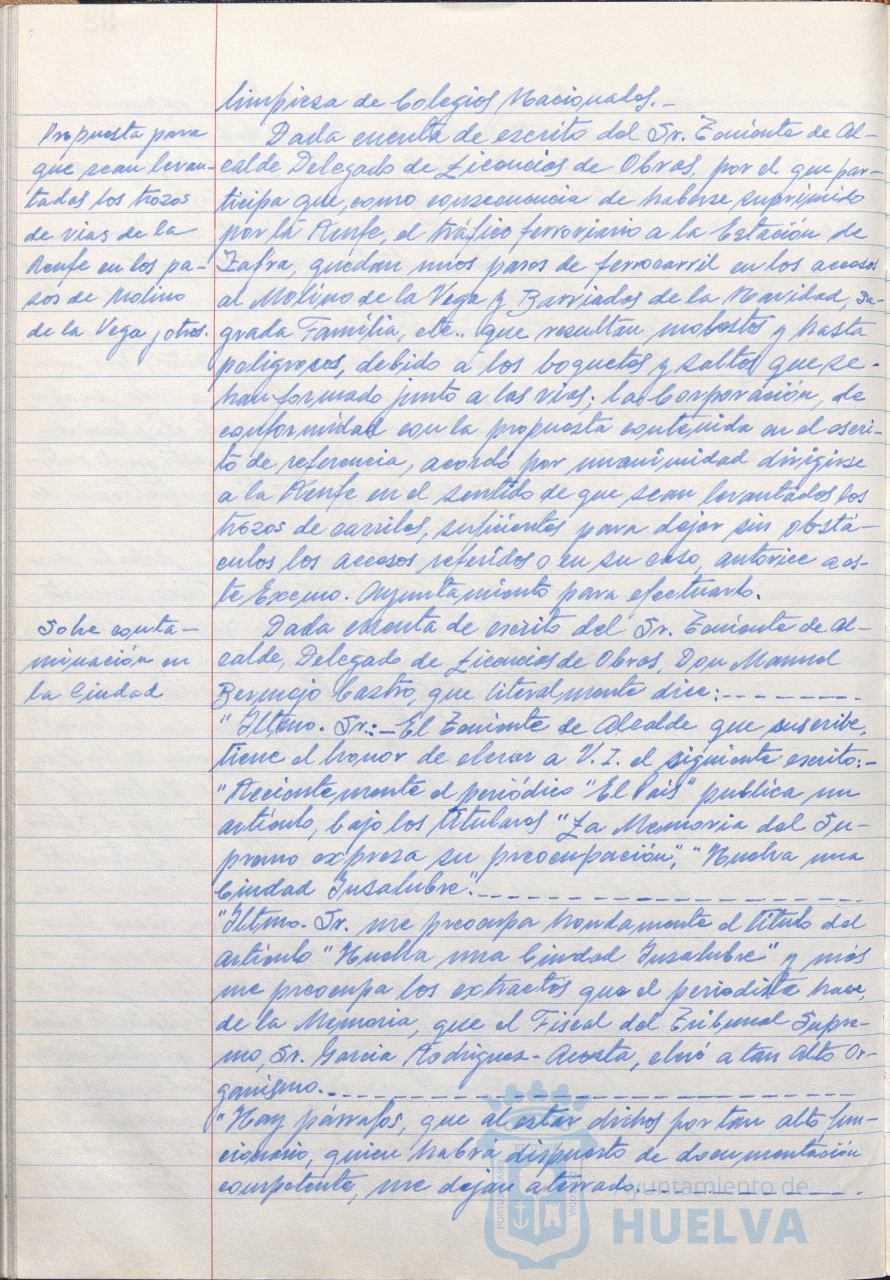 limpieza de Colegios Nacionales.-
Propuesta para
que sean levan-
tados los trozos
de vias de la
Renfe en los pa-
sos de Molino
de la Vega y otros.
Dada cuenta de escrito del Sr. Teniente de Al-
calde Delegado de Licencias de Obras, por el que par-
ticipa que, como consecuencia de haberse suprimido
por la Renfe, el tráfico ferroviario a la Estación de
Zafra, quedan unos pasos de ferrocarril en los accesos
al Molino de la Vega y Barriadas de la Navidad, Sa-
grada Familia, etc.. que resultan molestos y hasta
peligrosos, debido a los boquetes y saltos que se-
han formado junto a las vias; la Corporación, de
conformidad con la propuesta contenida en el escri-
to de referencia, acordó por unanimidad dirigirse
a la Renfe en el sentido de que sean levantados los
trozos de carriles, suficientes para dejar sin obstá-
culos los accesos referidos o en su caso, autorice a es-
te Excmo. Ayuntamiento para efectuarlo.
Sobre conta-
minación en
la Ciudad
Dada cuenta de escrito del Sr. Teniente de Al-
calde, Delegado de Licencias de Obras, Don Manuel
Bermejo Castro, que literalmente dice:--------
"Iltmo. Sr.:-El Teniente de Alcalde que suscribe,
tiene el honor de elevar a V. I. el siguiente escrito:-
"Recientemente el periódico "El Pais" publica un
artículo, bajo los titulares "La Memoria del Su-
premo expresa su preocupación", "Huelva una
Ciudad Insalubre".--------------------
"Iltmo. Sr. me preocupa hondamente el título del
artículo "Huelva una Ciudad Insalubre" y más
me preocupa los extractos que el periodista hace,
de la Memoria, que el Fiscal del Tribunal Supre-
mo, Sr. Garcia Rodriguez-Acosta, elevó a tan alto Or-
ganismo.--------------------------
"Hay párrafos, que al estar dichos por tan alto fun-
cionario, quien habrá dispuesto de documentación
competente, me dejan aterrado.------------
Ayuntamiento de
HUELVA